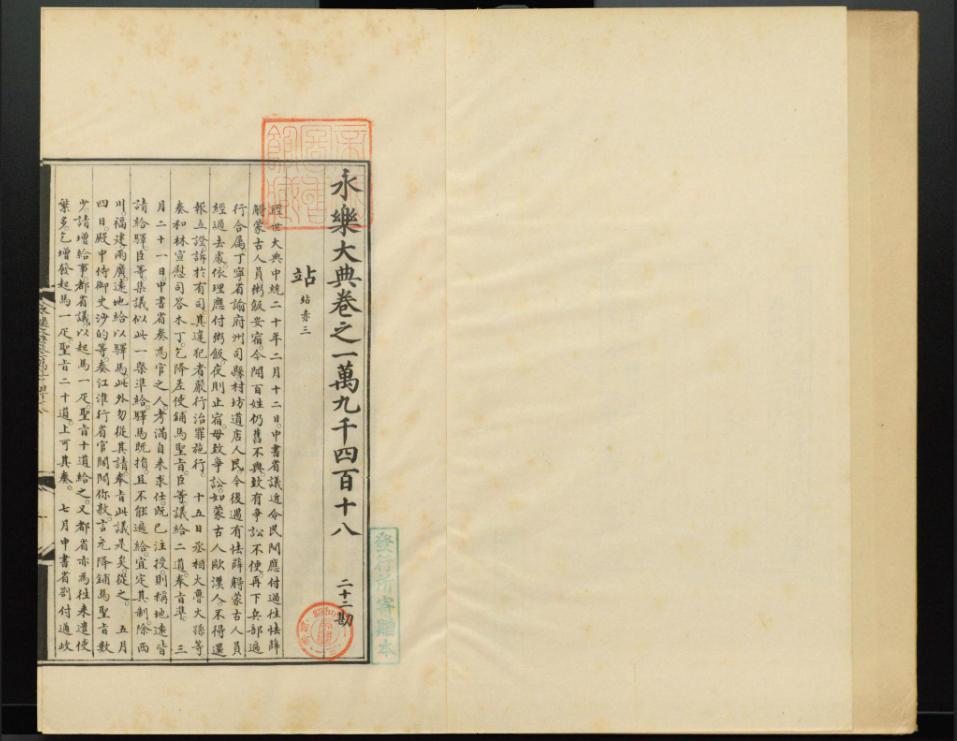 永樂大典卷之一萬九千四百十八
二十二勘
站
站赤三
經世大典中統二十年二月十二日中書省議近命民間應付過往怯薛
觧蒙古人員粥飯安宿今聞百姓仍舊不與致有爭訟不便再下兵部遍
行合屬丁寧省諭府州司縣村坊道店人民今後遇有怯薛觧蒙古人員
經過去處依理應付粥飯夜則止宿毋致爭訟如蒙古人毆漢人不得還
報立證訴於有司其違犯者嚴行治罪施行 十五日丞相火魯火孫等
奏和林宣慰司咨木丁乞降差使鋪馬聖旨臣等議給二道奉旨準 三
月二十一日中書省奏為官之人考滿自來求仕既已注授則稱地遠皆
請給驛臣等集議似此一槩準給驛馬既損且不能遍給宜定其制除西
川福建兩廣遠地給以驛馬此外勿從其請奉旨此議是矣從之 五月
四日殿中侍御史沙的等奏江淮行省官闊闊你敦言元降鋪馬聖旨數
少請增給事都省議以起馬一疋聖旨十道給之又都省亦為往來遣使
繁多乞增發起馬一疋聖旨二十道上可其奏 七月中書省劄付通政
發行所寄贈本